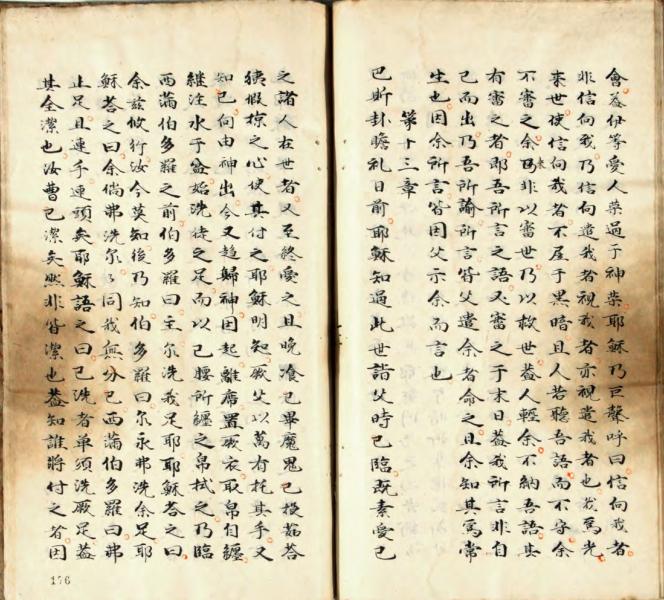 會蓋伊等愛人榮過于神榮耶穌乃巨聲呼曰信向我者
非信向我乃信向遣我者視我者亦視遣我者也我為光
來世使信向我者不居于黑暗且人若聽吾語而不守余
不審之余來乃非以審世乃以救世蓋人輕余不納吾語其
有審之者即吾所言之語又審之于末日蓋我所言非自
己而出乃吾所諭所言皆父遣余者命之且余知其為常
生也因余所言皆因父示余而言也
第十三章
巴斦卦瞻礼日前耶穌知過此世詣父時已臨既素愛己
之諸人在世者又至終愛之且晚飡已畢魔鬼已授茹荅
銕假掠之心使其付之耶穌明知厥父以萬有托其手又
知己向由神出今又趨歸神因起離席置厥衣取帛自纏
継注水于盆始洗徒之足而以己腰所纏之帛拭之乃臨
西滿伯多羅之前伯多羅曰主尔洗我足耶耶穌荅之曰
余茲攸行汝今莫知後乃知伯多羅曰尔永弗洗余足耶
穌荅之曰余倘弗洗尔尔同我無分已西滿伯多羅曰弗
止足且連手連頭矣耶穌語之曰已洗者单須洗厥足蓋
其全潔也汝曹已潔矣然非皆潔也蓋知誰將付之者因
176